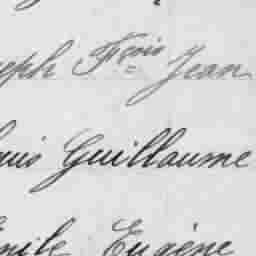 eph Fçois Jean
uis Guillaume
mile Eugène